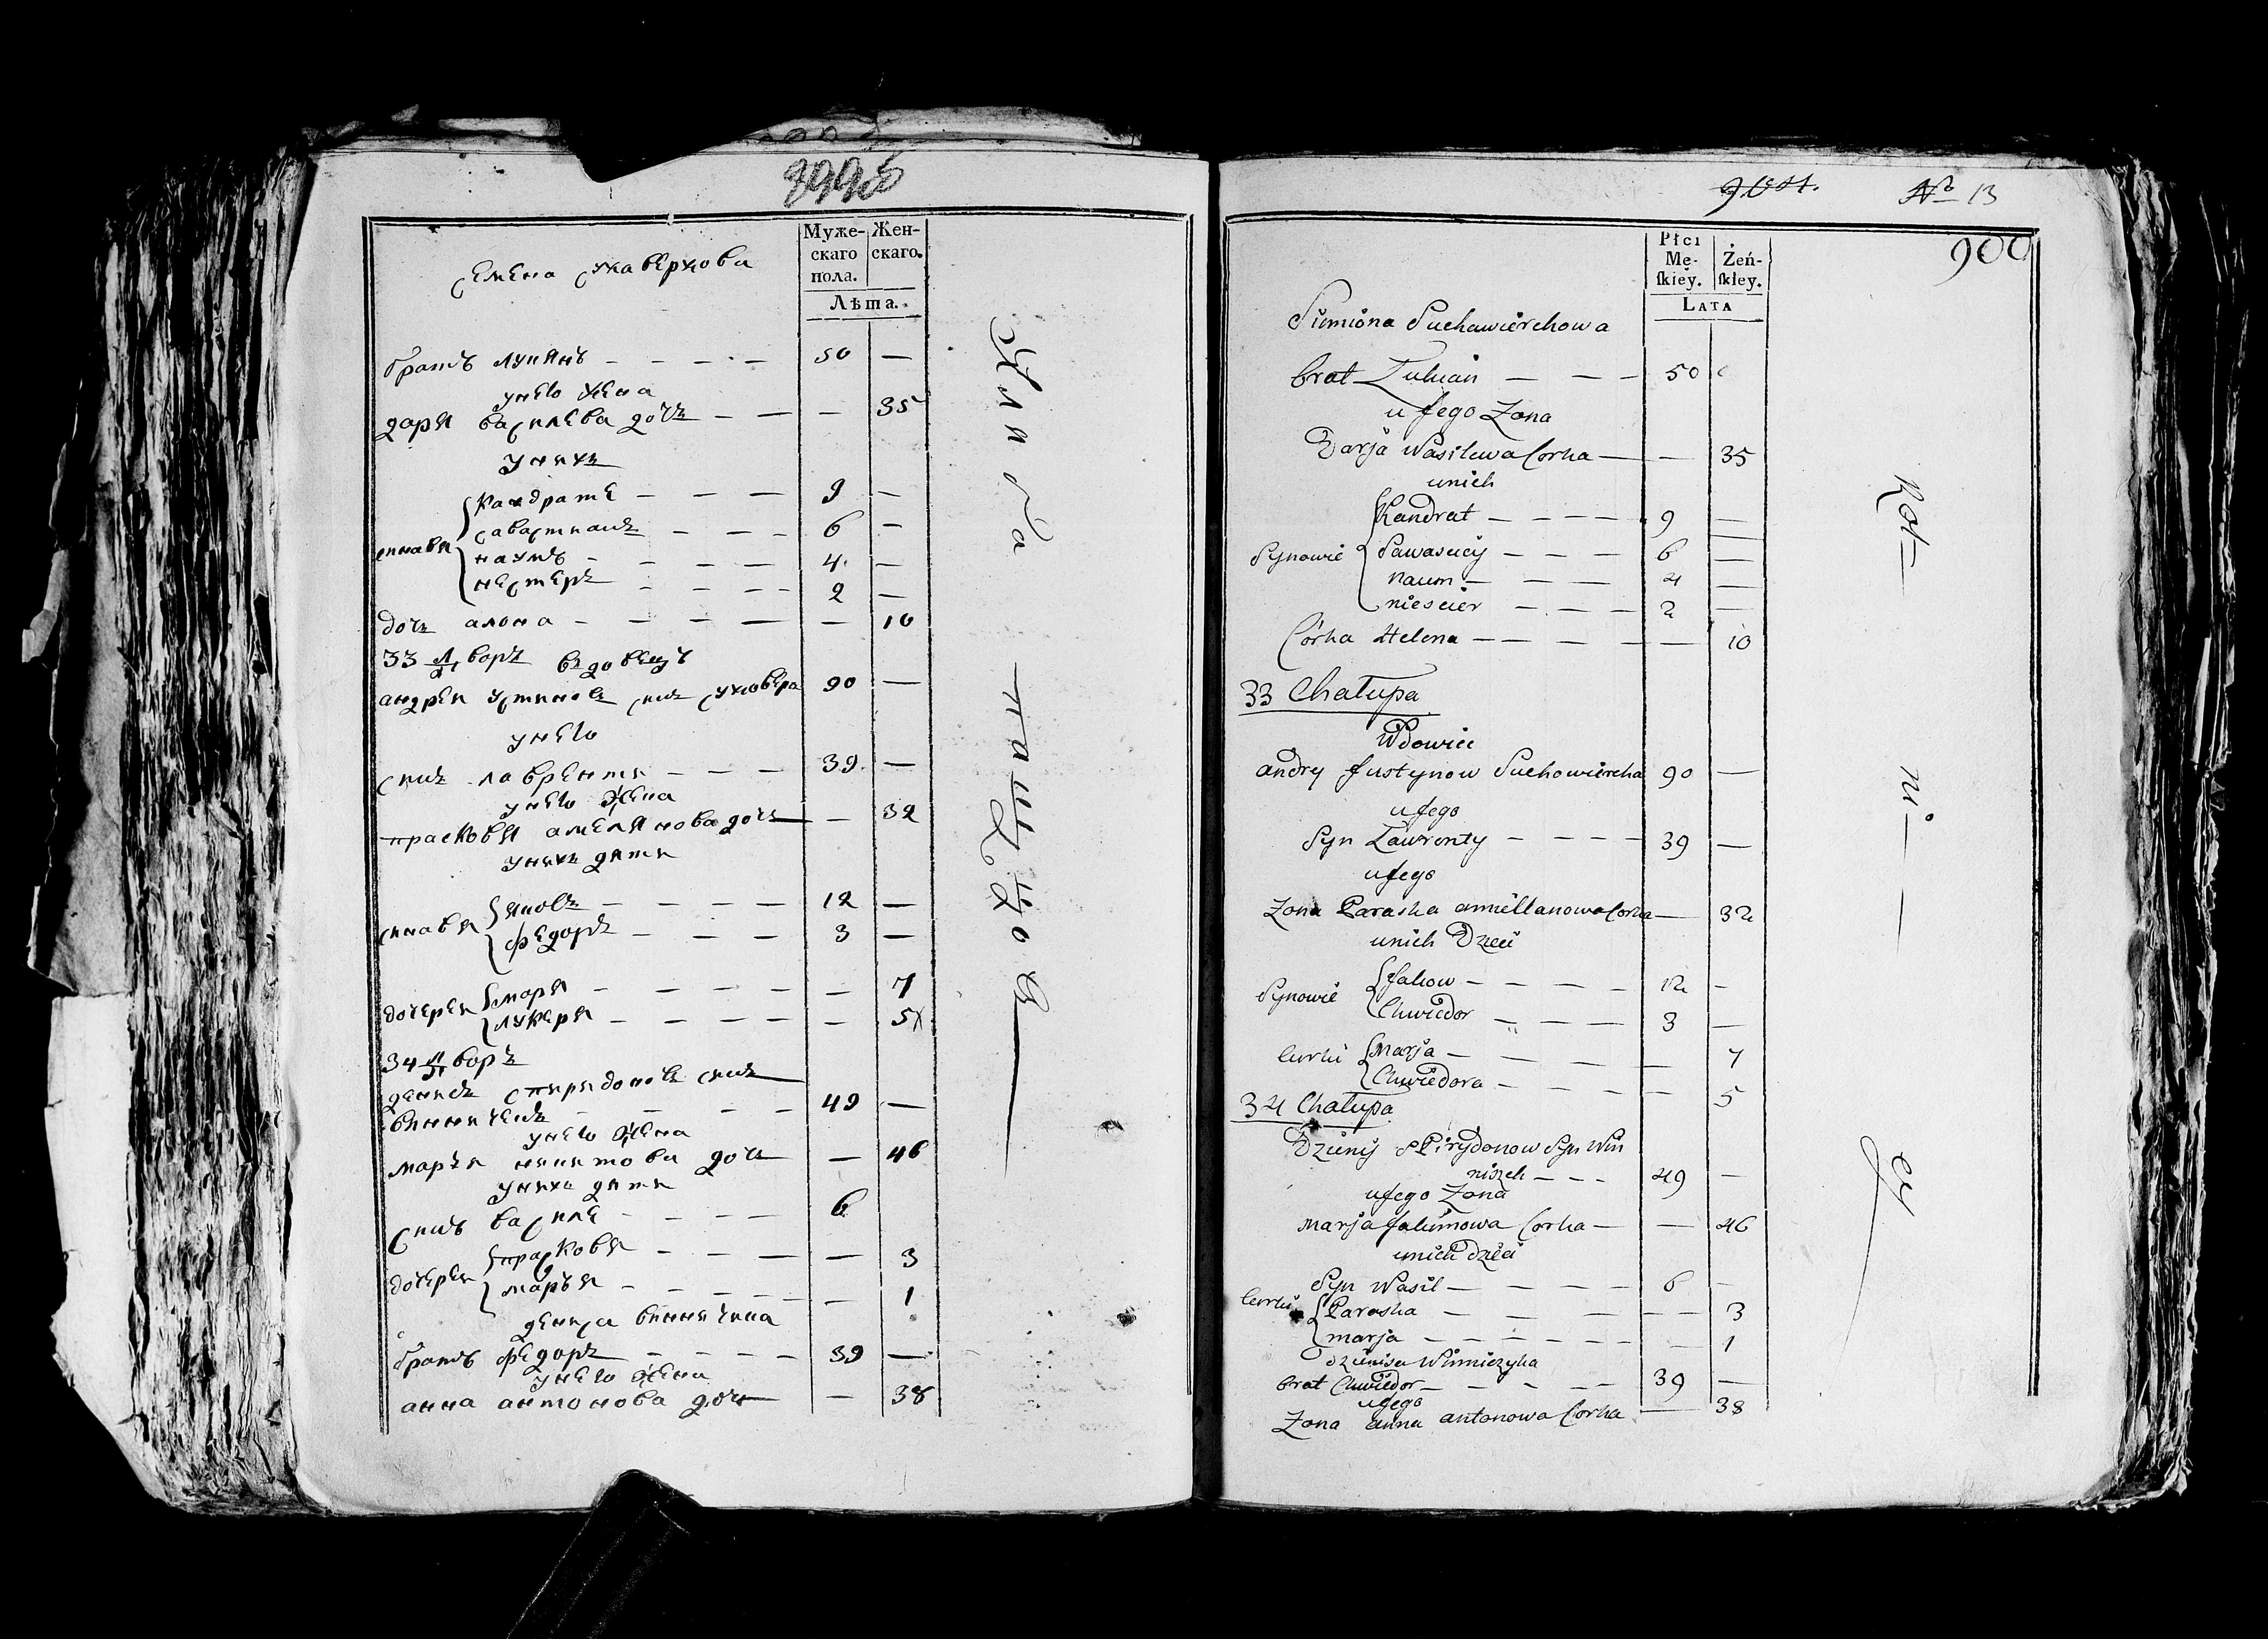 899об
Муже-скаго пола. Жен-скаго.
Лѣта.
Семена Сухаверхова
братъ лукянъ — — — — 50 —
унего жена
даря василева дочъ — — — 35
унихъ
сынавя
кандрате — — — 9 —
савастианъ — — — 6 —
наумъ — — — 4 —
нестеръ — — — 2 —
дочъ алона — — — — — 10
33 дворъ вдовецъ
андреи устиновъ сынъ суховерха 90 —
унего
сынъ лаврентя — — — 39 —
унего жена
прасковя амелянова дочъ — — 32
унихъ дети
сынавя
яковъ — — — — 12 —
федоръ — — — 3 —
дочерея
маря — — — — — 7
лукеря — — — — — 5
34 дворъ
денисъ спиридоновъ сынъ
винничекъ — — — 49 —
унего жена
маръя никитова дочъ — 46
унихъ дети
сынъ василе — — — — 6
дочерея
прасковя — — — — 3
маръя — — — — — 1
дениса винничика
братъ федоръ — — — — 39 —
унего жена
анна антонова дочъ — 38
904. № 13
900
Płci Mę-skiey. Żeń-skiey.
LATA
Simiona Suchawierchowa
brat Łukian — — — 50
u jego Zona
Darja Wasilewa Corka — — 35
unich
Synowie
Kandrat — — — — 9 —
Sawasciey — — — 6 —
naum — — — 4 —
niescier — — — 2 —
Córka Helena — — — — — 10
33 Chałupa
Wdowiec
andry Justynow Suchowiercha 90 —
u jego
Syn Ławrenty — — — — 39 —
u jego
Zona Paraska amiellanowa Corka — 32
unich Dzeci
Synowie
Jakow — — — — 12 —
Chwiedor — — — 3 —
Curki
Marja — — — — 7
Chwiedora — — — — 5
34 Chałupa
Dzienis SPirydonow Syn Win
niczek — — — 49 —
u jego Zona
Marja Jakimowa Corka — — 46
unich dzieci
Syn Wasil — — — — 6 —
Curki
Paraska — — — — — 3
marja — — — — — — — 1
Dzienisa Winniczyka
brat Chwiedor — — — — — 39 —
u jego
Zona anna antonowa Corka — 38